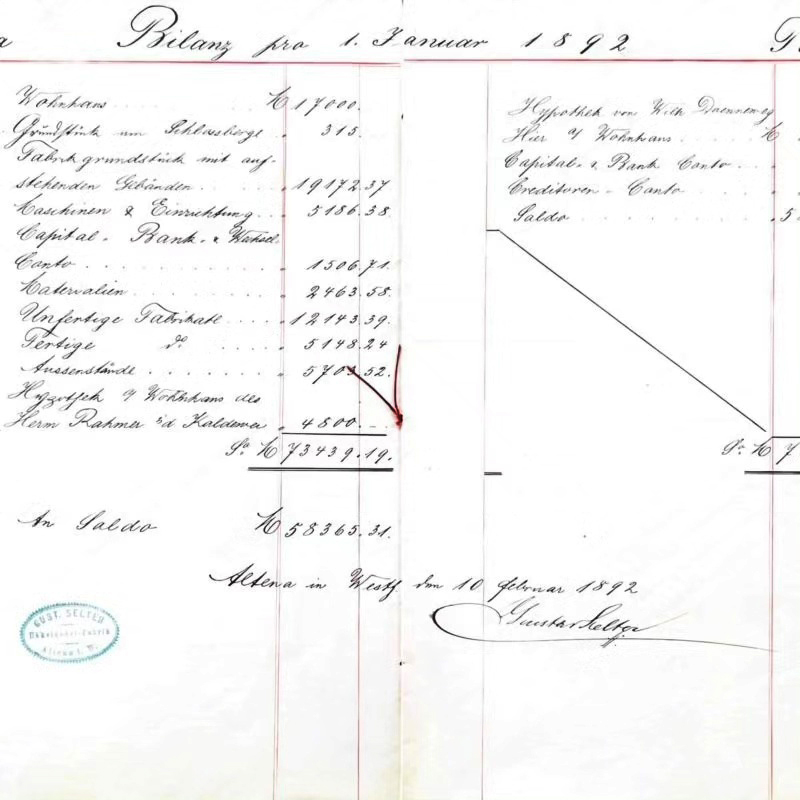 a Bilanz pro 1. Januar 1892
Wohnhaus M 17000.
Grundstück am Schlossberge " 315.
Fabrikgrundstück mit auf-
stehenden Gebäuden " 19172.37
Maschinen & Einrichtung " 5186.38.
Capital- Bank- & Wechsel-
Conto " 1506.71.
Materialien " 2463.58.
Unfertige Fabrikate " 12143.39.
Fertige do " 5148.24
Aussenstände " 5703.52.
Hypothek a/ Wohnhaus des
Herrn Rahmer " 4800.–
Sa. M 73439.19.
An Saldo M 58365.31.
Hypothek von Wilh. Daenneweg
Hier a/ Wohnhaus M
Capital- & Bank Conto "
Creditoren-Conto "
Saldo " 5
Sa. M 7
Altena in Westf. den 10 Februar 1892
Gustav Selter
GUST. SELTER
Häkelnadel-Fabrik
Altena i. W.